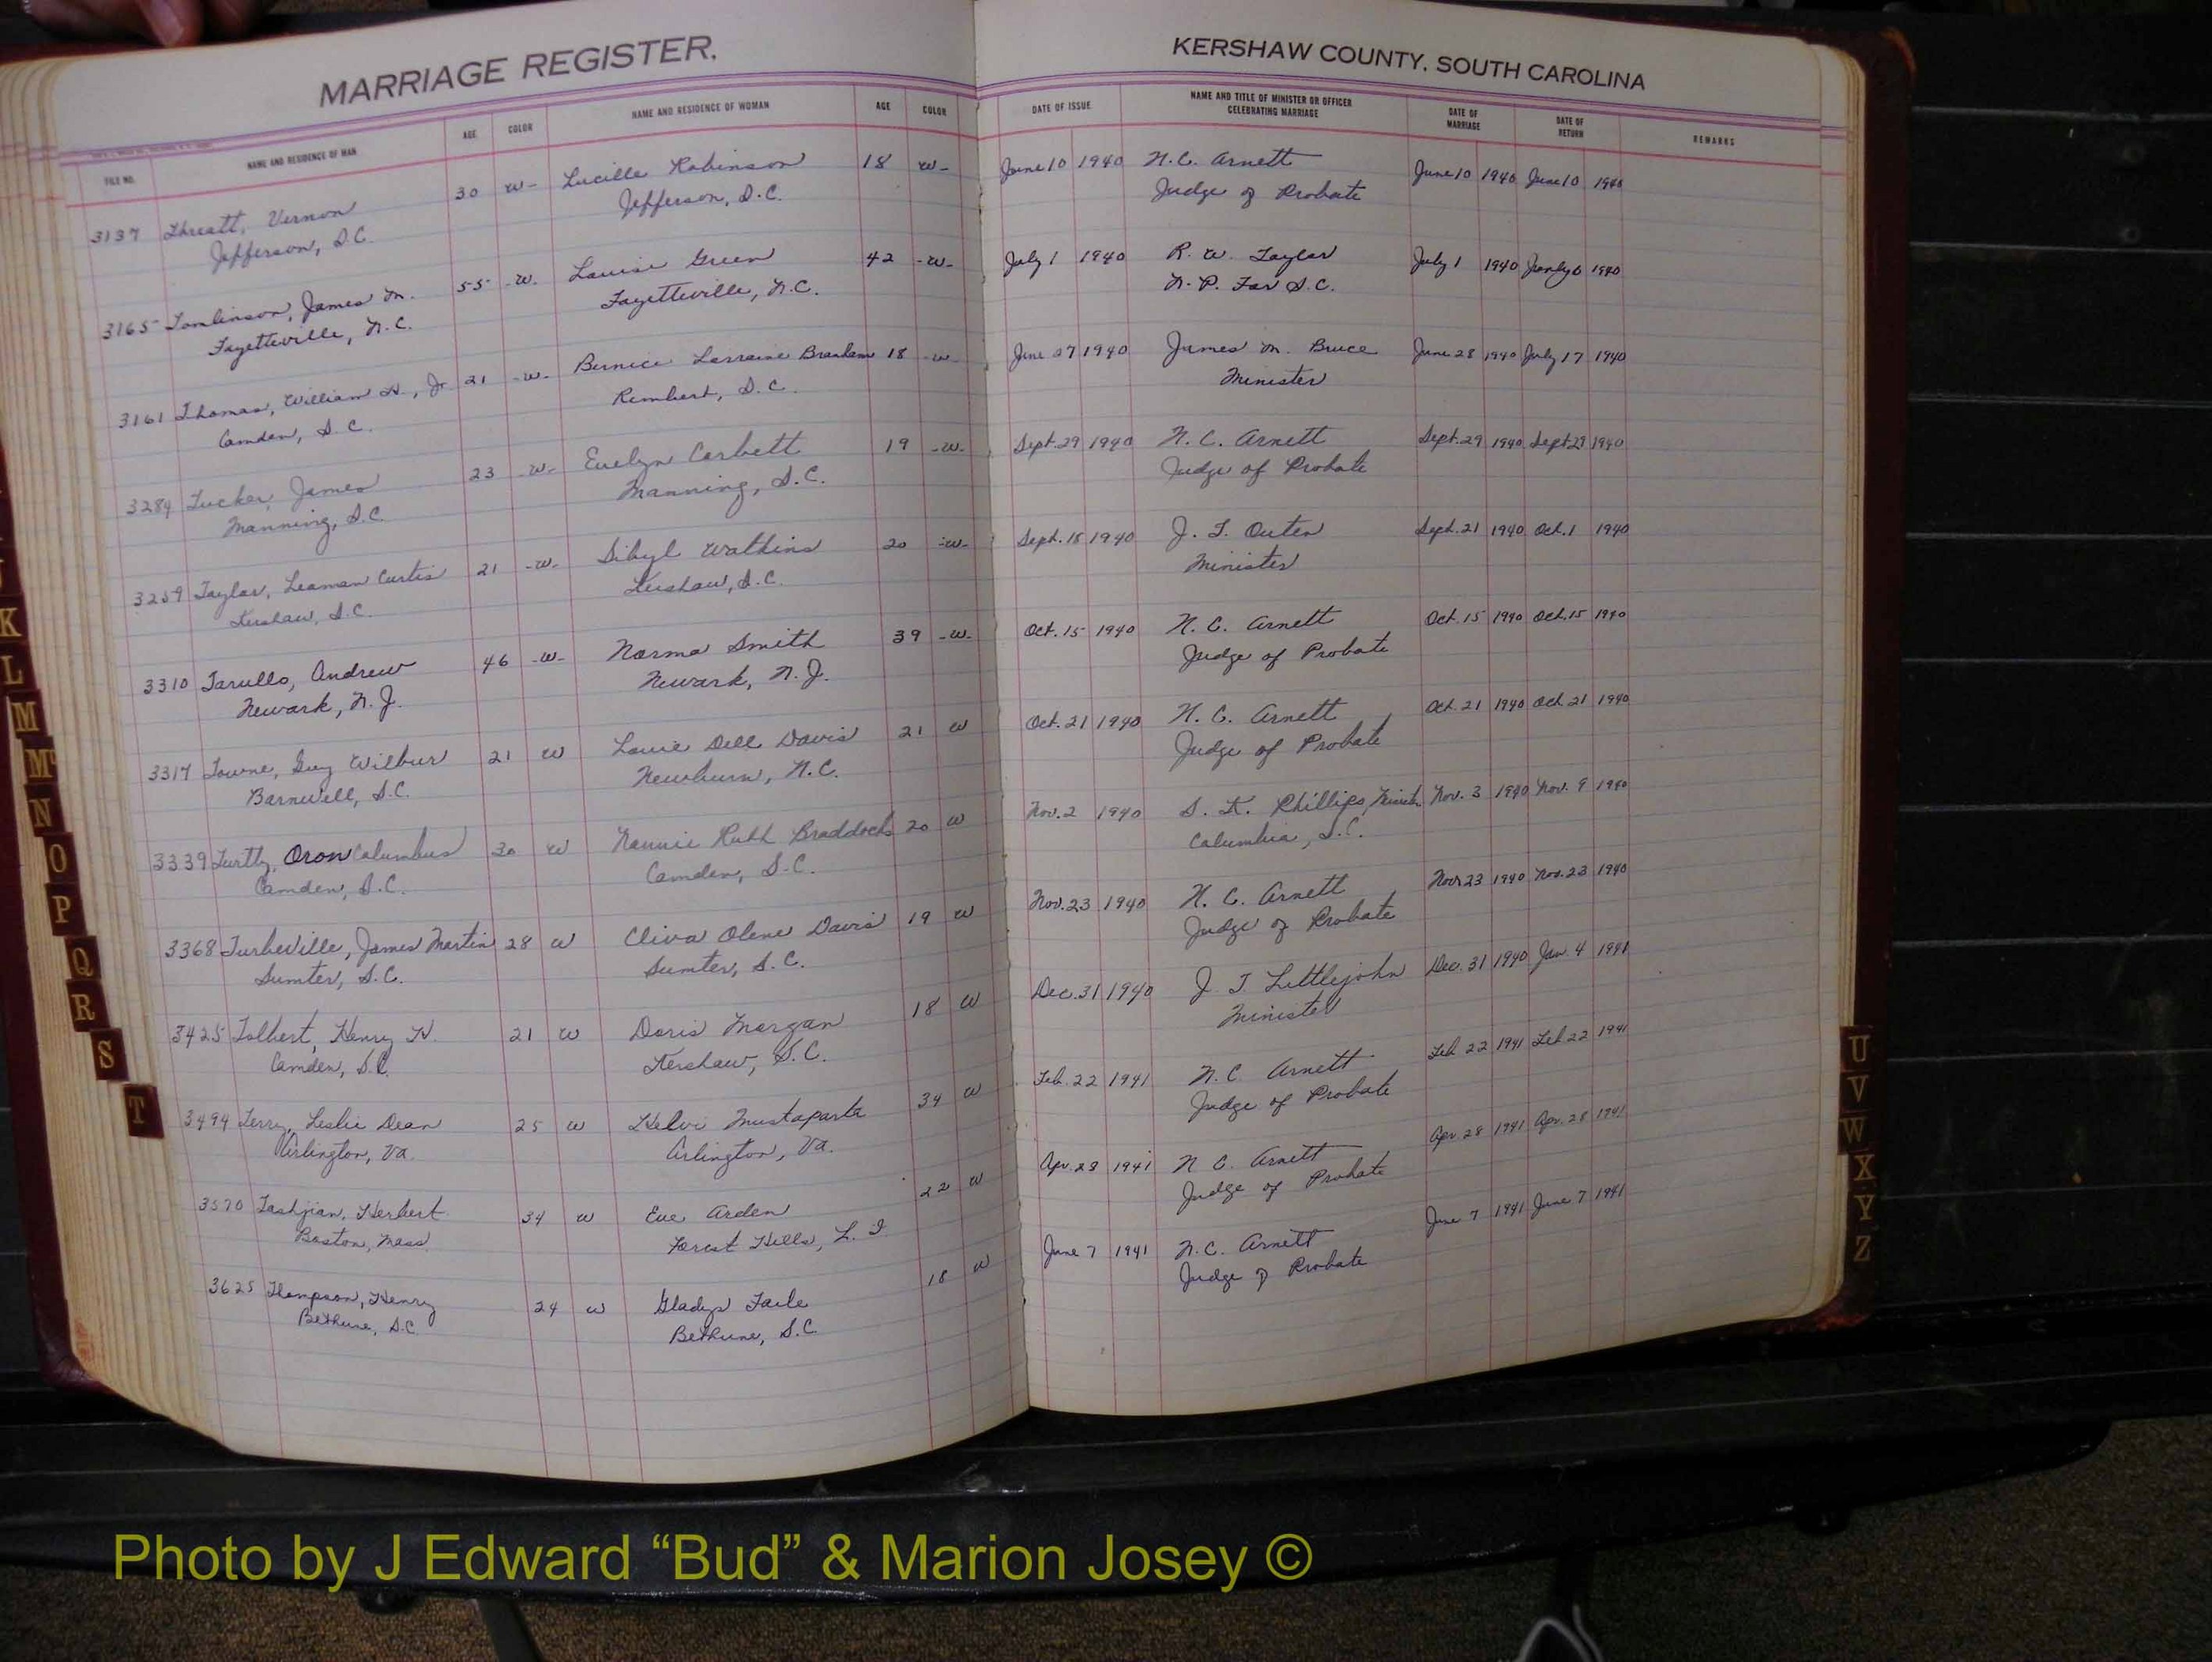 MARRIAGE REGISTER.
KERSHAW COUNTY, SOUTH CAROLINA
FILE NO. NAME AND RESIDENCE OF MAN AGE COLOR NAME AND RESIDENCE OF WOMAN AGE COLOR DATE OF ISSUE NAME AND TITLE OF MINISTER OR OFFICER CELEBRATING MARRIAGE DATE OF MARRIAGE DATE OF RETURN REMARKS
3137 Threatt, Vernon 30 W- Lucille Robinson 18 W- June 10 1940 N.C. Arnett June 10 1940 June 10 1940
Jefferson, S.C. Jefferson, S.C. Judge of Probate
3165 Tomlinson, James M. 55 -W- Louise Green 42 -W- July 1 1940 R. W. Taylor July 1 1940 1940
Fayetteville, N.C. Fayetteville, N.C. N.P. For S.C.
3161 Thomas, William H., Jr 21 -W- Bernice Lorraine Branham 18 -W- June 27 1940 James M. Bruce June 28 1940 July 17 1940
Camden, S.C. Rembert, S.C. Minister
3284 Tucker, James 23 -W- Evelyn Corbett 19 -W- Sept. 29 1940 N.C. Arnett Sept. 29 1940 Sept 29 1940
Manning, S.C. Manning, S.C. Judge of Probate
3259 Taylor, Leaman Curtis 21 -W- Sibyl Watkins 20 -W- Sept. 18 1940 J. T. Outen Sept. 21 1940 Oct. 1 1940
Kershaw, S.C. Kershaw, S.C. Minister
3310 Tarullo, Andrew 46 -W- Norma Smith 39 -W- Oct. 15 1940 N.C. Arnett Oct. 15 1940 Oct. 15 1940
Newark, N.J. Newark, N.J. Judge of Probate
3317 Towne, Guy Wilbur 21 W Louie Dell Davis 21 W Oct. 21 1940 N.C. Arnett Oct. 21 1940 Oct 21 1940
Barnwell, S.C. Newburn, N.C. Judge of Probate
3339 Oron Columbus 30 W Nannie Ruth Braddock 20 W Nov. 2 1940 S. K. Phillips, Minister Nov. 3 1940 Nov. 9 1940
Camden, S.C. Camden, S.C. Columbia, S.C.
3368 Turbeville, James Martin 28 W Cliva Olene Davis 19 W Nov. 23 1940 N.C. Arnett Nov 23 1940 Nov. 23 1940
Sumter, S.C. Sumter, S.C. Judge of Probate
3425 Tolbert, Henry H. 21 W Doris Morgan 18 W Dec. 31 1940 J T Littlejohn Dec. 31 1940 Jan. 4 1941
Camden, S.C. Kershaw, S.C. Minister
3494 Terry, Leslie Dean 25 W Helvi Mustaparta 34 W Feb. 22 1941 N.C Arnett Feb 22 1941 Feb 22 1941
Arlington, Va. Arlington, Va. Judge of Probate
3570 Tashjian, Herbert 34 W Eve Arden 22 W Apr. 28 1941 N C. Arnett Apr. 28 1941 Apr. 28 1941
Boston, Mass Forest Hills, L. I Judge of Probate
3625 Thompson, Henry 24 W Gladys Faile 18 W June 7 1941 N.C. Arnett June 7 1941 June 7 1941
Bethune, S.C. Bethune, S.C. Judge of Probate
K
L
M
Mc
N
O
P
Q
R
S
T
U
V
W
X
Y
Z
Photo by J Edward “Bud” & Marion Josey ©